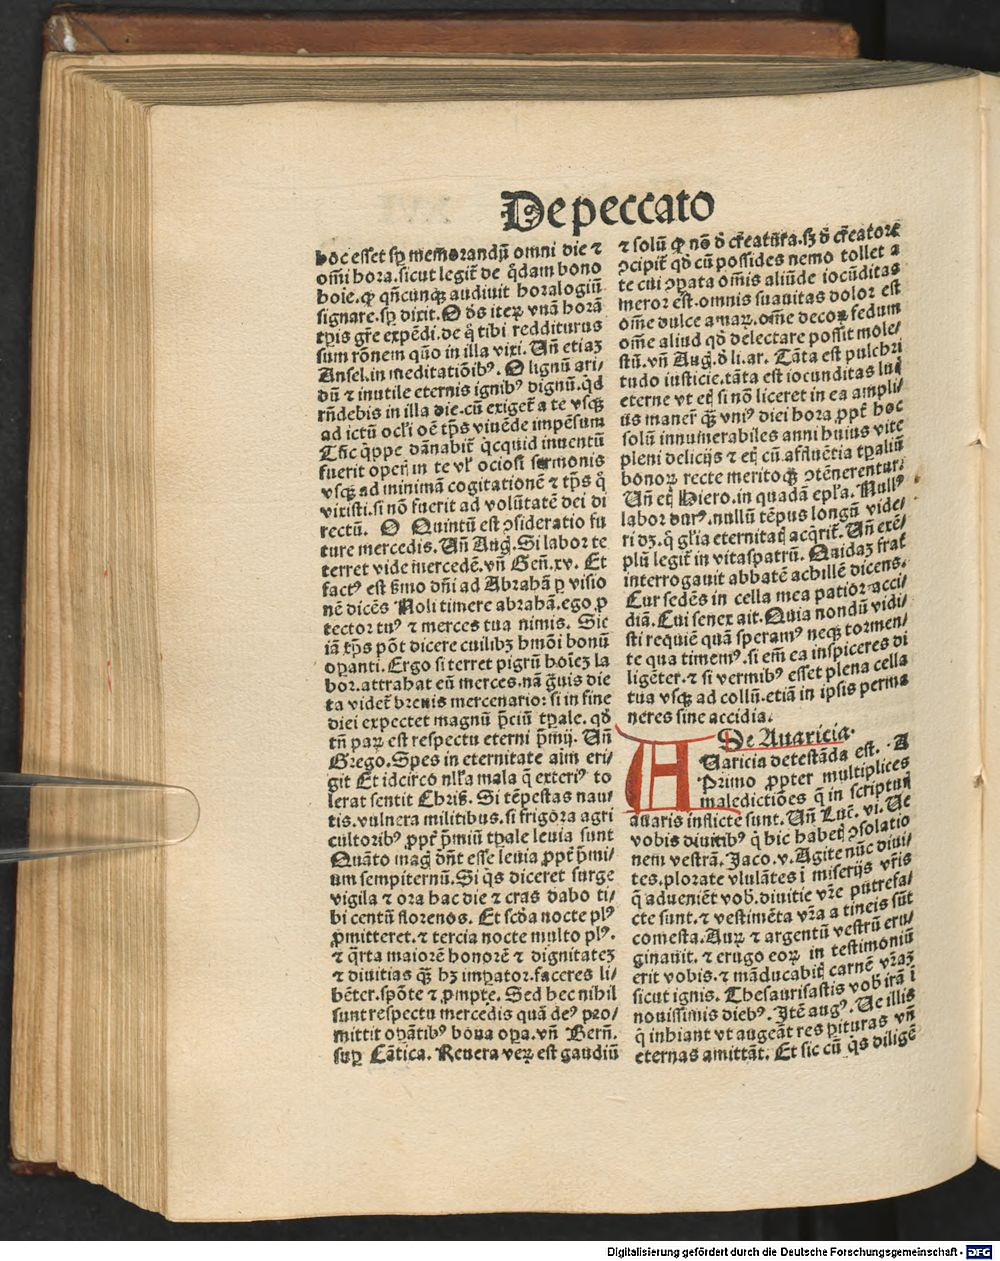 De peccato
hoc esset sꝑ memorandũ omni die ⁊
om̃i hora. sicut legit᷑ de q̊dam bono
hoĩe. ꝙ qñcunq̃ audiuit horalogiũ
signare. sꝑ dixit. O dñs iteꝝ vnã horã
tp̃is gr̃e expẽdi. de q̊ tibi redditurus
sum rõnem quõ in illa vixi. Vñ etiaꝫ
Ansel. in meditatiõibꝰ. O lignũ ari/
dũ ⁊ inutile eternis ignibꝰ dignũ. qd
rñdebis in illa die. cũ exiget᷑ a te vsqꝫ
ad ictũ ocl'i oẽ tp̃s viuẽde impẽsum
Tũc q̇ppe dãnabit᷑ q̇cquid inuentũ
fuerit oper̃ in te vl' ociosi sermonis
vsqꝫ ad minimã cogitationẽ ⁊ tp̃s q̊
vixisti. si nõ fuerit ad volũtatẽ dei di
rectũ. O Quintũ est ꝯsideratio fu
ture mercedis. Vñ Aug̃. Si labor te
terret vide mercedẽ. vñ Geñ. xv. Et
factꝰ est sermo dñi ad Abrahã ꝑ visio
nẽ dicẽs Noli timere abrahã. ego ꝓ
tector tuꝰ ⁊ merces tua nimis. Sic
iã xp̃s põt dicere cuilibꝫ hmõi bonũ
oꝑanti. Ergo si terret pigrũ hoĩeꝫ la
bor. attrahat eũ merces. nã g̃uis die
ta videt᷑ breuis mercenario: si in fine
diei expectet magnũ p̃ciũ tꝑale. qd̕
tñ paꝝ est respectu eterni p̃mij. Vñ
Grego. Spes in eternitate aĩm eri/
git Et idcirco nl'la mala q̃ exteriꝰ to
lerat sentit Chrĩs. Si tẽpestas nau/
tis. vulnera militibus. si frigora agri
cultoribꝰ ꝓpt᷑ p̃miũ tꝑale leuia sunt
Quãto mag̃ dñt esse leuia ꝓpt᷑ p̃mi/
um sempiternũ. Si q̇s diceret surge
vigila ⁊ ora hac die ⁊ cras dabo ti/
bi centũ florenos. Et scd̕a nocte plꝰ
ꝓmitteret. ⁊ tercia nocte multo plꝰ.
⁊ q̃rta maiorẽ honorẽ ⁊ dignitateꝫ
⁊ diuitias q̃ꝫ hꝫ imꝑator. faceres li/
bẽter. spõte ⁊ ꝓmpte. Sed hec nihil
sunt respectu mercedis quã deꝰ pro/
mittit oꝑãtibꝰ bona oꝑa. vñ Berñ.
suꝑ Cãtica. Reuera veꝝ est gaudiũ
⁊ solũ ꝙ nõ d̕ cr̃eatura. sꝫ d̕ cr̃eatore
ꝯcipit᷑ qd̕ cũ possides nemo tollet a
te cui ꝯꝑata om̃is aliũde iocũditas
meror est. omnis suauitas dolor est
om̃e dulce amaꝝ. om̃e decoꝝ fedum
om̃e aliud qd̕ delectare possit mole/
stũ. vñ Aug̃. d̕ li. ar. Tãta est pulchri
tudo iusticie. tãta est iocunditas luc̃
eterne vt etĩ si nõ liceret in ea ampli/
us maner̃ q̃ꝫ vniꝰ diei hora ꝓpt᷑ hoc
solũ innumerabiles anni huius vite
pleni delicijs ⁊ etĩ cũ affluẽtia tꝑaliũ
bonoꝝ recte meritoqꝫ ꝯtẽnerentur.
Vñ etĩ Hiero. in quadã epl'a. Nullꝰ
labor durꝰ. nullũ tẽpus longũ vide/
ri dꝫ. q̊ gl'ia eternitat̃ acq̇rit᷑. Vñ exẽ/
plũ legit᷑ in vitaspatrũ. Quidaꝫ frat᷑
interrogauit abbatẽ achillẽ dicens.
Cur sedẽs in cella mea patior acci/
diã. Cui senex ait. Quia nondũ vidi/
sti requiẽ quã speramꝰ neqꝫ tormen/
ta que timemꝰ. si em̃ ea inspiceres di
ligẽter. ⁊ si vermibꝰ esset plena cella
tua vsqꝫ ad collũ. etiã in ipsis perma
neres sine accidia.
De Auaricia.
AUaricia detestãda est. A
Primo ꝓpter multiplices
maledictiões q̃ in scripturĩ
auaris inflicte sunt. Vñ Luc̃. vi. Ve
vobis diuitibꝰ q̇ hic habet̃ ꝯsolatio
nem vestrã. Jaco. v. Agite nũc diui/
tes. plorate vlulãtes ĩ miserijs vr̃is
q̃ aduenient vob̕. diuitie vr̃e putrefa/
cte sunt. ⁊ vestimẽta vr̃a a tineis sũt
comesta. Auꝝ ⁊ argentũ vestrũ eru/
ginauit. ⁊ erugo eoꝝ in testimoniũ
erit vobis. ⁊ mãducabit carnẽ vr̃aꝫ
sicut ignis. Thesaurisastis vob̕ irã ĩ
nouissimis diebꝰ. Jtẽ augꝰ. Ve illis
q̇ inhiant vt augeãt res ꝑituras vñ
eternas amittãt. Et sic cũ q̇s diligẽ
Digitalisierung gefördert durch die Deutsche Forschungsgemeinschaft - DFG